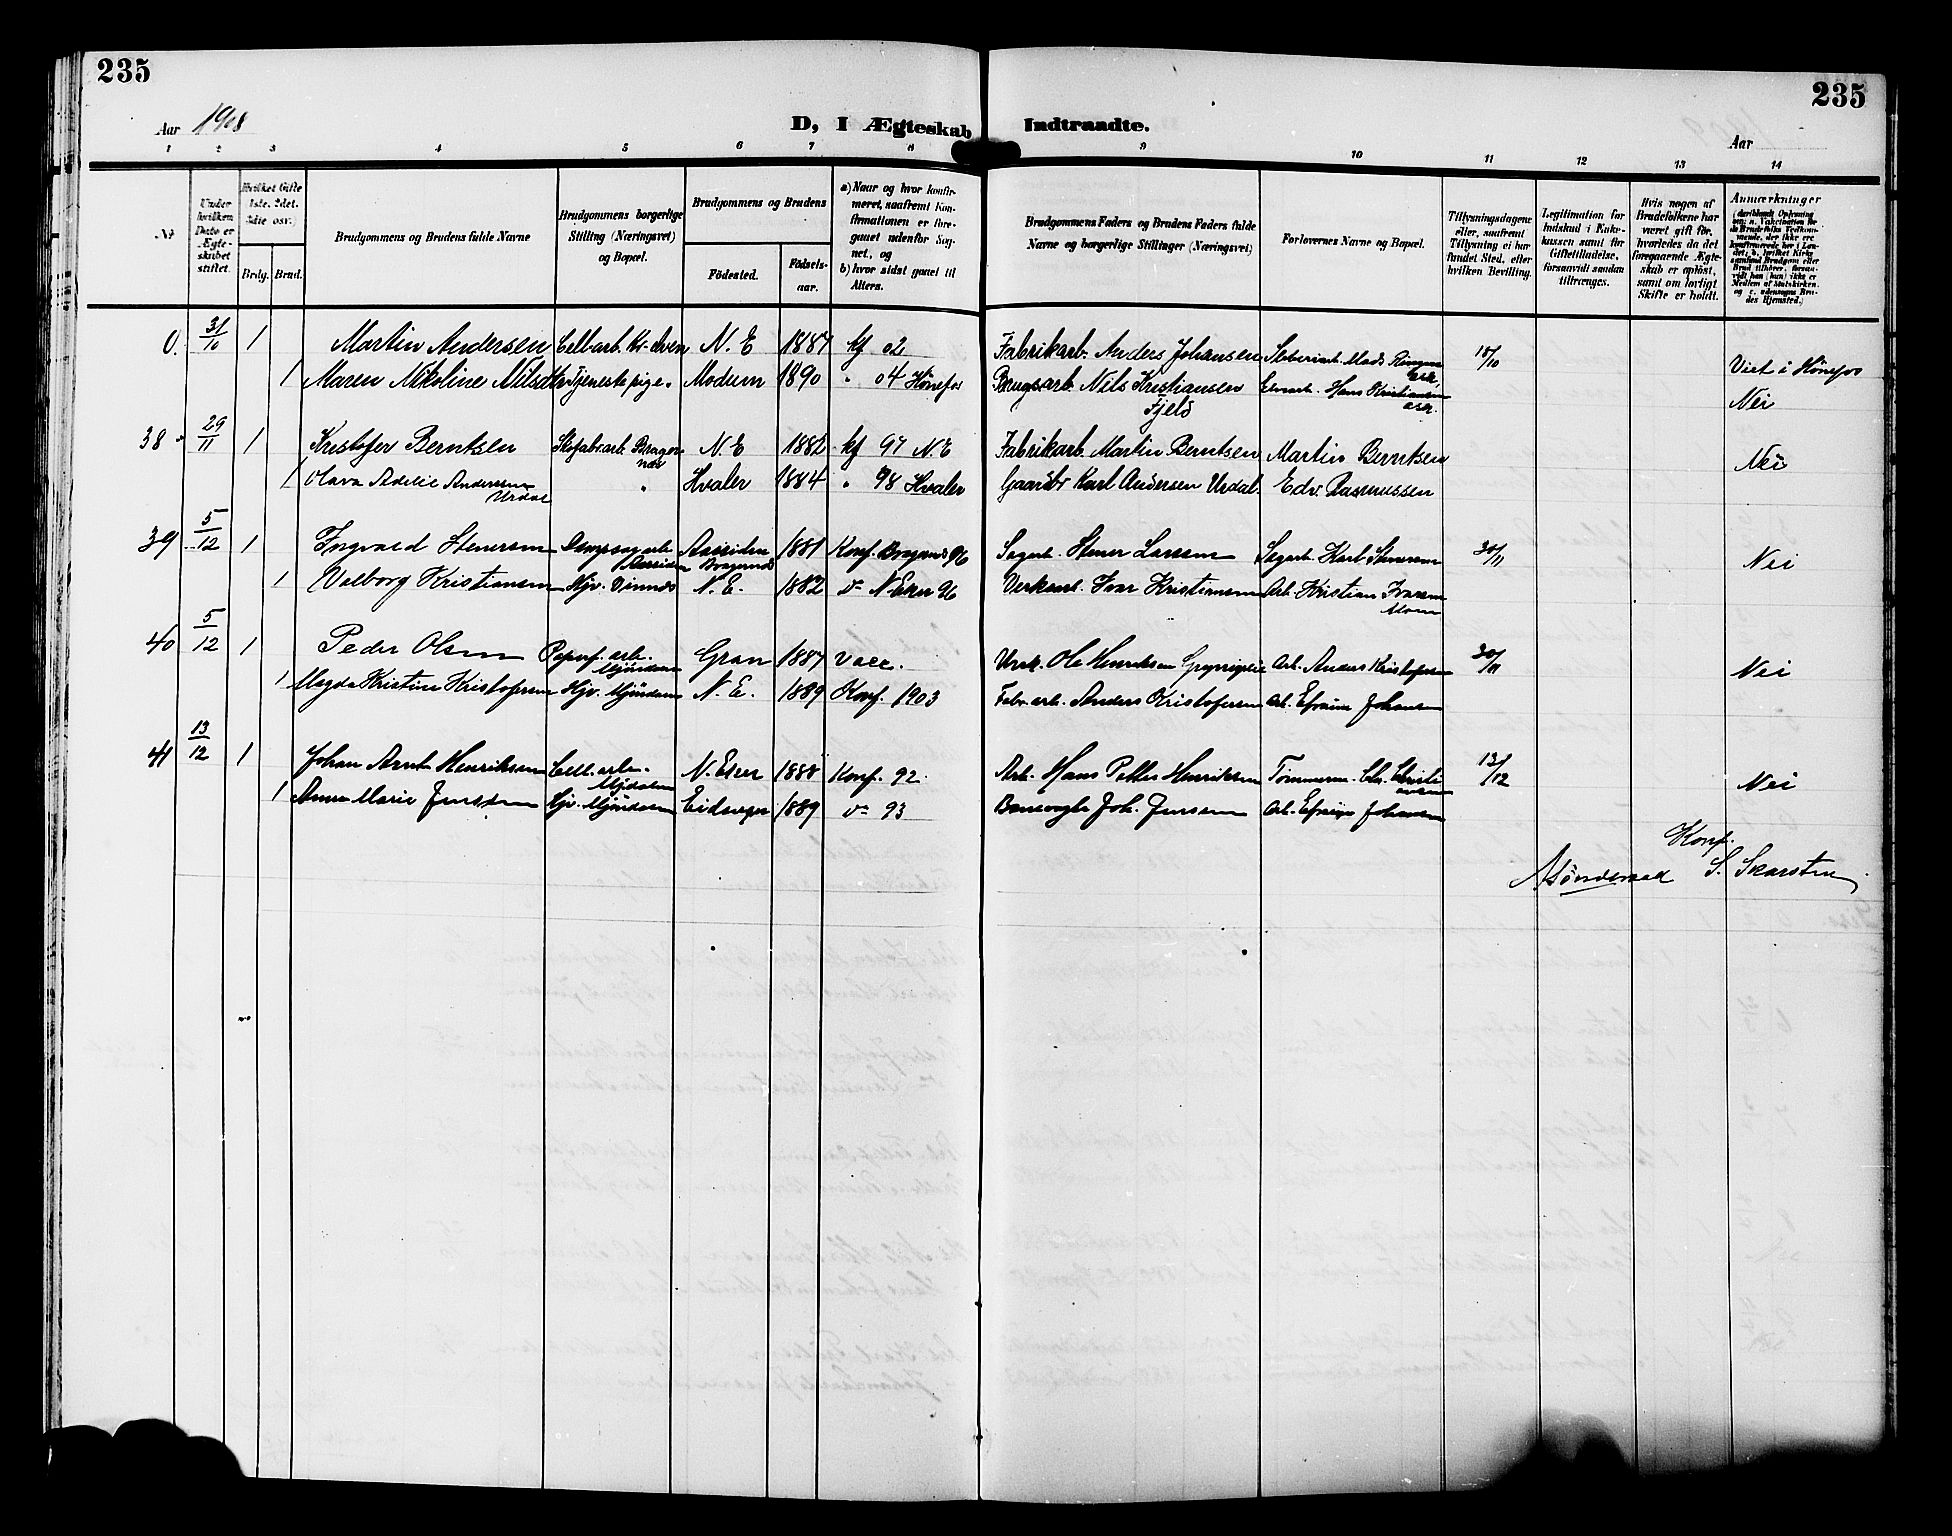 235
235
Aar 1908
D, I Ægteskab Indtraadte.
Aar
1 2 3 4 5 6 7 8 9 10 11 12 13 14
Nr
Under hvilken Dato er Ægteskabet stiftet.
Hvilket Gifte 1ste, 2det, 3die osv.)
Brdg. Brud.
Brudgommens og Brudens fulde Navne
Brudgommens borgerlige Stilling (Næringsvei) og Bopæl.
Brudgommens og Brudens
Födested.
Födsels-aar.
a) Naar og hvor konfirmeret, saafremt Konfirmationen er foregaaet udenfor Sognet, og
b) hvor sidst gaaet til Alters.
Brudgommens Faders og Brudens Faders fulde Navne og borgerlige Stillinger (Næringsvei)
Forlovernes Navne og Bopæl.
Tillysningsdagene eller, saafremt Tillysning ei har fundet Sted, efter hvilken Bevilling.
Legitimation for Indskud i Enkekassen samt for Giftetilladelse, forsaavidt saadan tiltrænges.
Hvis nogen af Brudefolkene har været gift för, hvorledes da det foregaaende Ægteskab er oplöst, samt om lovligt Skifte er holdt.
Anmærkninger
0. 31/10 1 Martin Andersen Cellarb. N. E 1887 kf 02 Fabrikarb. Anders Johansen Mads 18/10 Viet i Hönefos
1 Maren Nikoline Tjenestepige. Modum 1890 " 04 Hönefos Brugsarb. Nils Kristiansen Fjeld Hans Kristiansen Nei
38. 29/11 1 Kristofer Berntsen Skofabr.arb. Bragernæs N. E 1882 kf 97 N. E Fabrikarb. Martin Berntsen Martin Berntsen Nei
1 Olava Adelie Andersen Urdal " Hvaler 1884 " 98 Hvaler Gaardbr Karl Andersen Urdal. Edv. Rasmussen
39 5/12 1 Ingvald Stenersen Aassiden Aassiden Bragernæs 1881 Konf. Bragernæs 96 Sagarb. Stener Larsen Sagarb. Karl Stenersen 30/11 Nei
1 Valborg Kristiansen Hjv. N. E. 1882 do N. Eker 96 Ivar Kristiansen Arb. Kristian Ivarsen
40 5/12 1 Peder Olsen Papirf. arb. Mjöndalen Gran 1887 Vacc. Ole Henriksen Arb. Anders Kristofersen 30/11 Nei
1 Magda Kristine Kristofersen Hjv. Mjöndalen N. E. 1889 Konf. 1903 Fabr. arb. Anders Kristofersen Arb. Efraim Johansen
41 13/12 1 Johan Arnt Henriksen Cell. arb. Mjdalen N. Eker 1888 Konf. 92. Arb. Hans Petter Henriksen Tömmerm. Chr. Christiansen 13/12 Nei
1 Anna Marie Jensen Hjv. Mjöndalen Eidanger 1889 do 93 Banevogter Joh. Jensen Arb. Efraim Johansen
Konf.
S. Skarsten